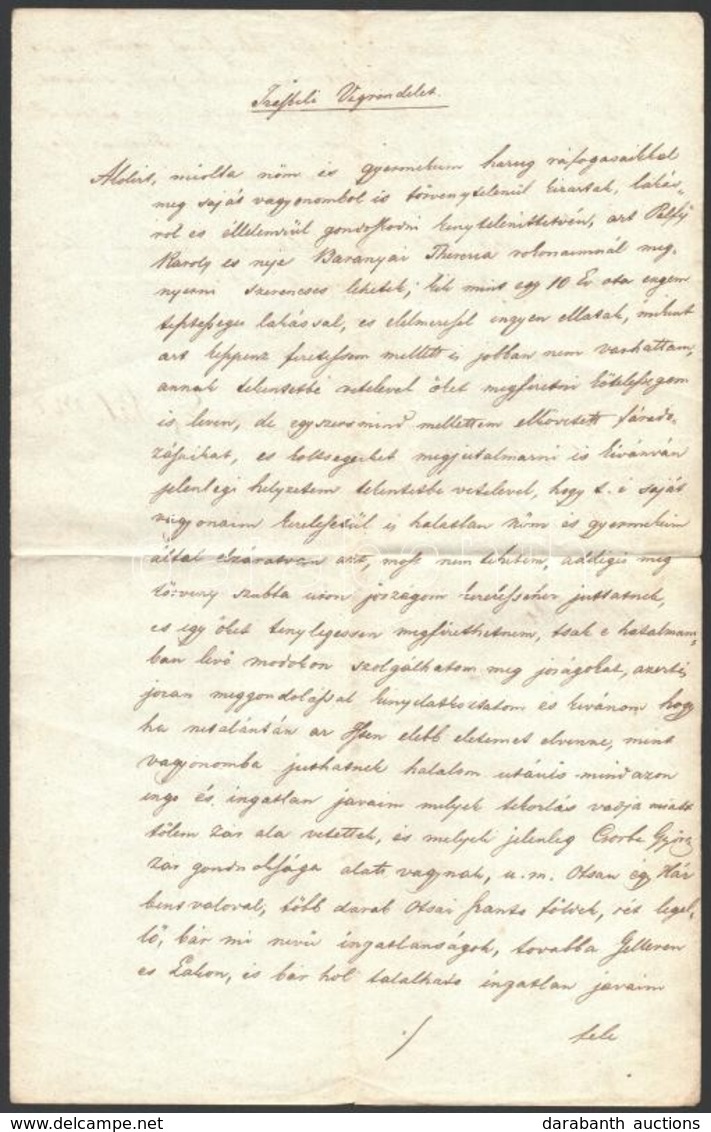 Irásbeli Végrendelet.
Alólirt, miolta nöm és gyermekeim hazug ráfogásaikkal
meg saját vagyonombol is törvenytelenül kizartak, lakás„
rol es élelemrül gondoskodni kenytelenittetvén, azt Pálfÿ
Karoly es neje Baranyai Therezia rokonaimnál meg„
nyerni szerencses lehetek; kik mint egy 10 Év ota engem
tisztesseges lakással, es elelmezésel ingyen ellatak, mikint
azt keppenz fizetessem mellett is jobban nem varhattam,
annak tekentetbe vetelevel őket megfizetni kötelessegem
is leven, de egyszersmind mellettem elkovetett fárado„
zásaikat, es koltsegeiket megjutalmazni is kivánván
jelenlegi helyzetem tekentetbe vetelevel, hogy t. i. saját
vagyonaim kezelesetül is halatlan nöm es gyermekeim
által elzáratván azt, most nem tehetem, addigis meg
törveny szabta uton joszágom kezelessehez juthatnék,
es igy őket tenylegessen megfizethetnem, tsak e hatalmam„
ban levő modokon szolgálhatom meg joságokat, azert is
jozan meggondolással kinyilatkoztatom és kivánom hogy
ha netalántán az Isten elebb eletemet elvenne, mint
vagyonomba juthatnék halalom utánis mindazon
ingo és ingatlan javaim melyek tekozlás vádja miatt
tölem zár ala vetettek, és melyek jelenleg Csorba Györg
zár gondnoksága alatt vagynak, u. m. Otsan egy Ház
bensövaloval, több darab Otsai szanto földek, rét legel„
lő, bár mi nevü ingatlanságok, tovabba Gelleren
es Lakon, és bár hol talalhato ingatlan javaim
./.
fele
www.darabanth.com
darabanth auctions